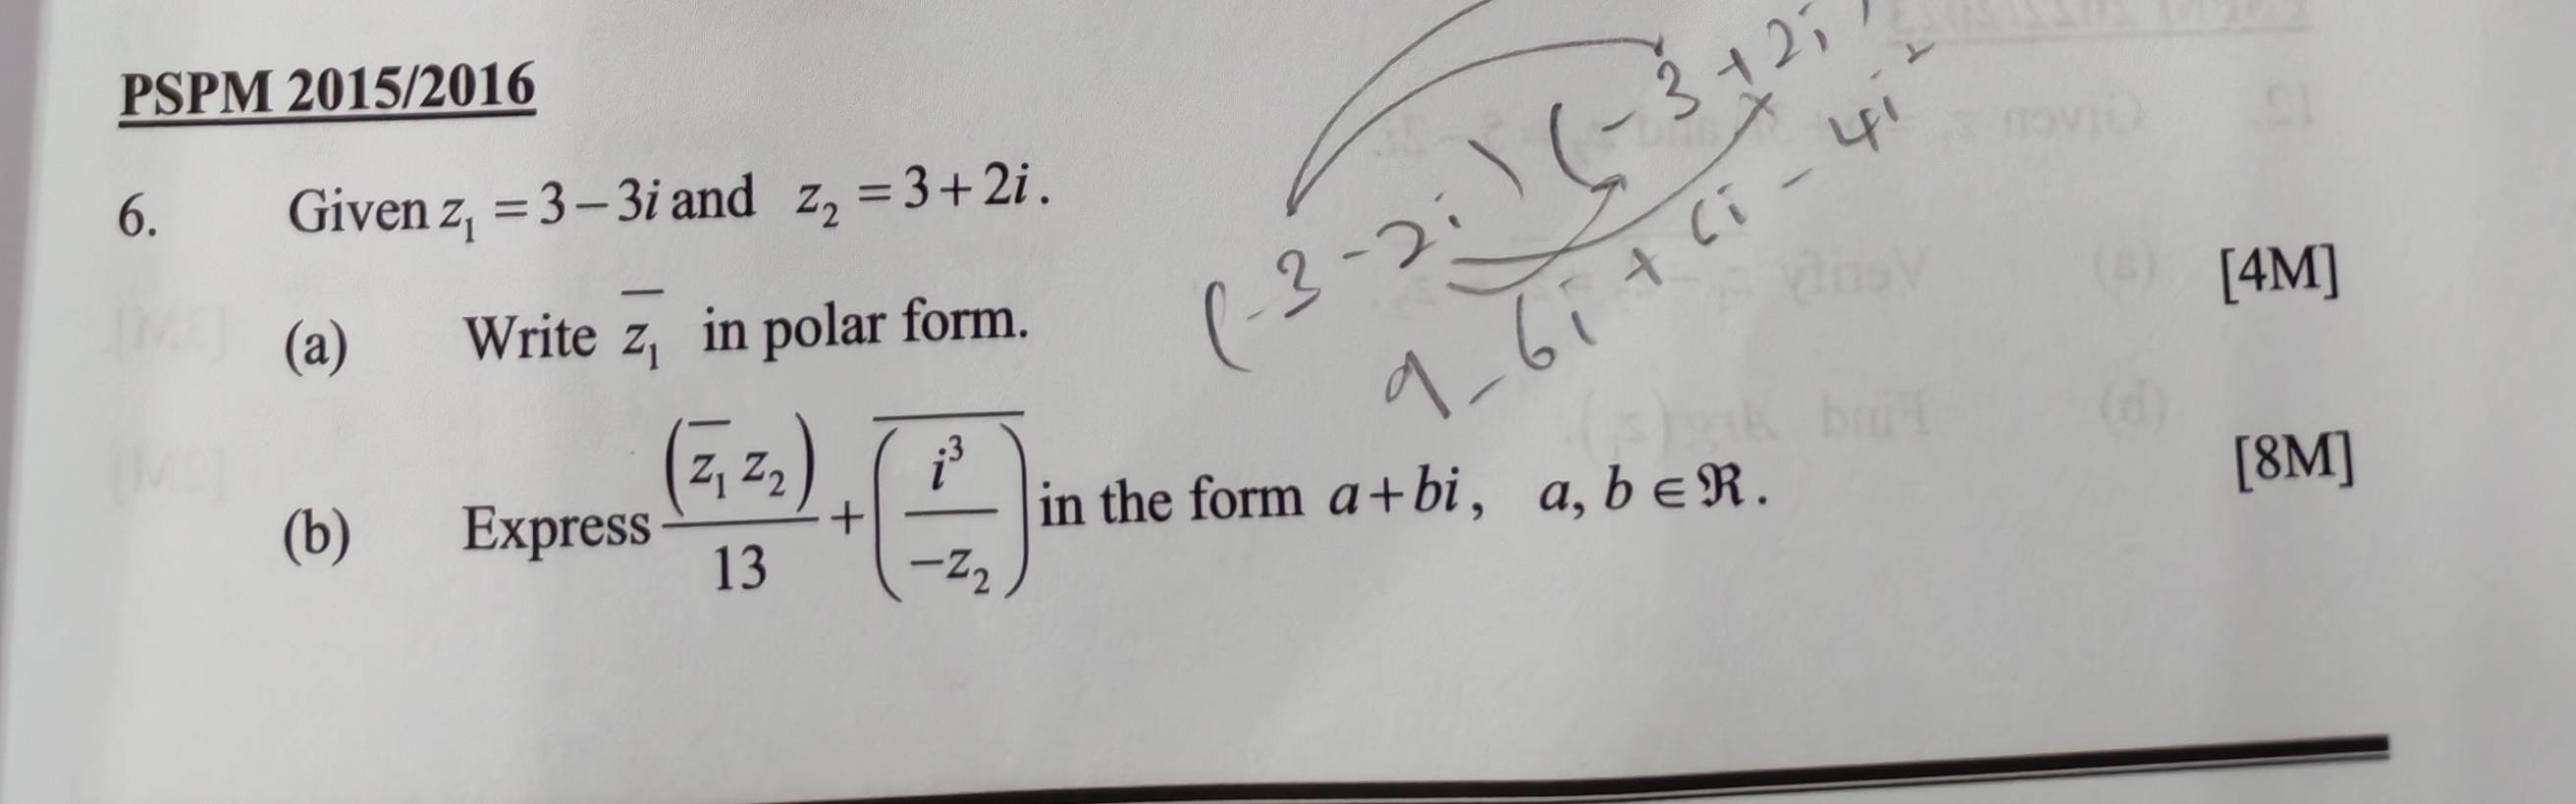 PSPM 2015/2016
6. Given z₁ = 3 − 3i and z₂ = 3 + 2i.
(a) Write z̅₁ in polar form. [4M]
(b) Express (z̅₁ z₂)/13 + \overline{(i³/(−z₂))} in the form a + bi, a, b ∈ ℜ. [8M]
(-3 - 2i) (-3 + 2i)
9 - 6i + 6i - 4i²